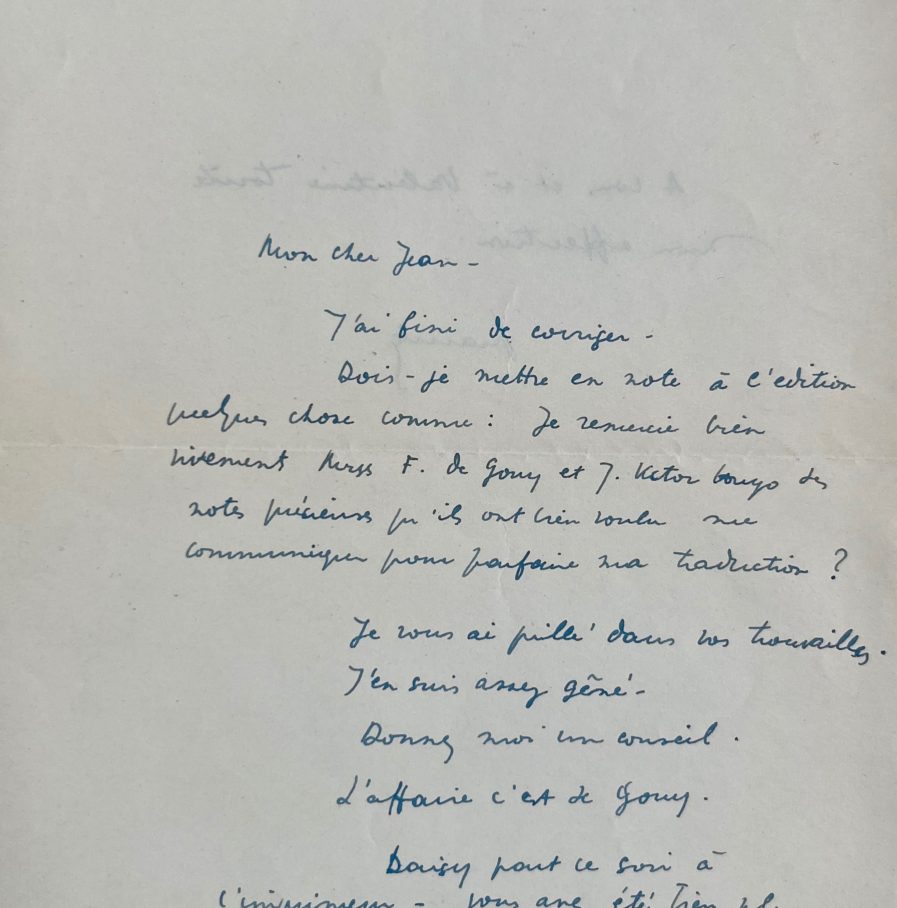 Mon cher Jean -
J'ai fini de corriger -
Dois-je mettre en note à l'edition
quelques chose comme : Je remercie bien
vivement Mrss F. de Gouy et J. Victor des
notes précieuses qu'ils ont bien voulu me
communiquer pour parfaire ma traduction ?
Je vous ai pillé dans vos trouvailles.
J'en suis assez gêné -
Donnez moi un conseil .
L'affaire c'est de Gouy .
Daisy part ce soir à
l'imprimeur - Vous avez été bien